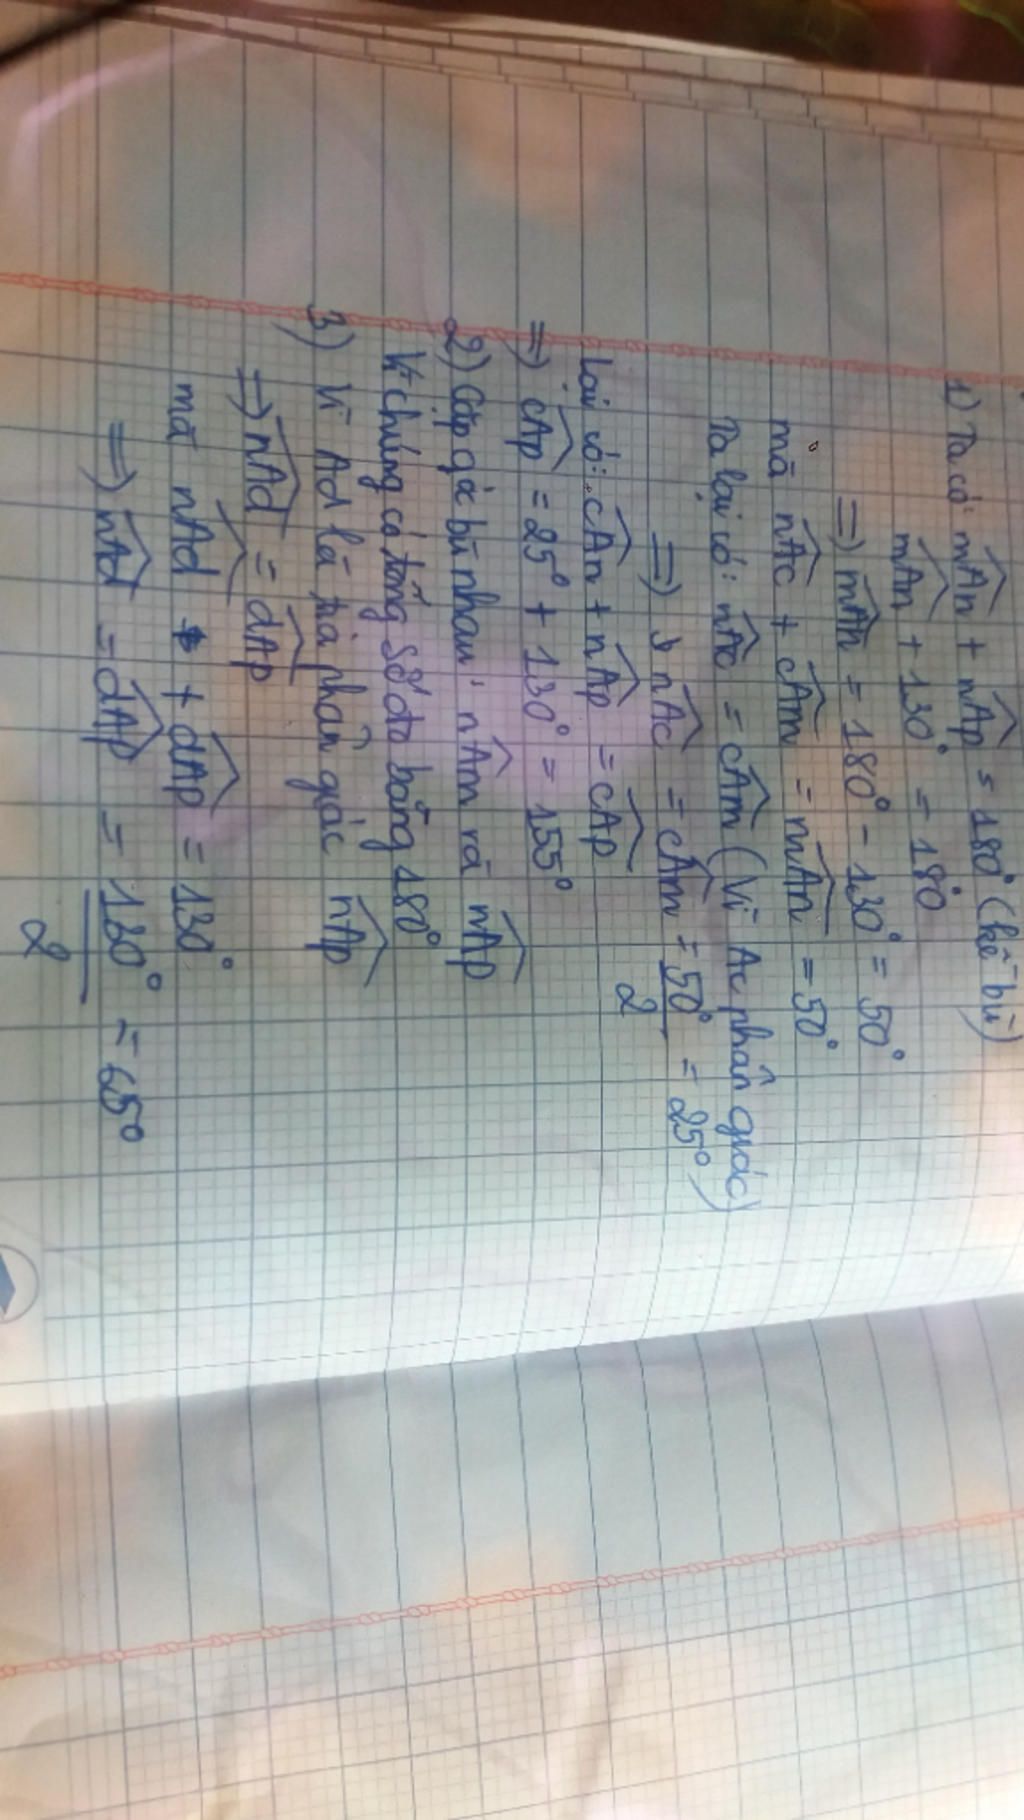 1) Ta có: mÂn + nÂp = 180° (kề bù)
mÂn + 130° = 180
=> mÂn = 180° - 130° = 50°
mà nÂc + cÂm = mÂn = 50°
Ta lại có: nÂc = cÂm (Vì Ac phân giác)
=> nÂc = cÂm = 50°/2 = 25°
Lại có: cÂn + nÂp = cÂp
=> cÂp = 25° + 130° = 155°
2) Cặp góc bù nhau: nÂm và nÂp
Vì chúng có tổng số đo bằng 180°
3) Vì Ad là tia phân giác nÂp
=> nÂd = dÂp
mà nÂd + dÂp = 130°
=> nÂd = dÂp = 130°/2 = 65°